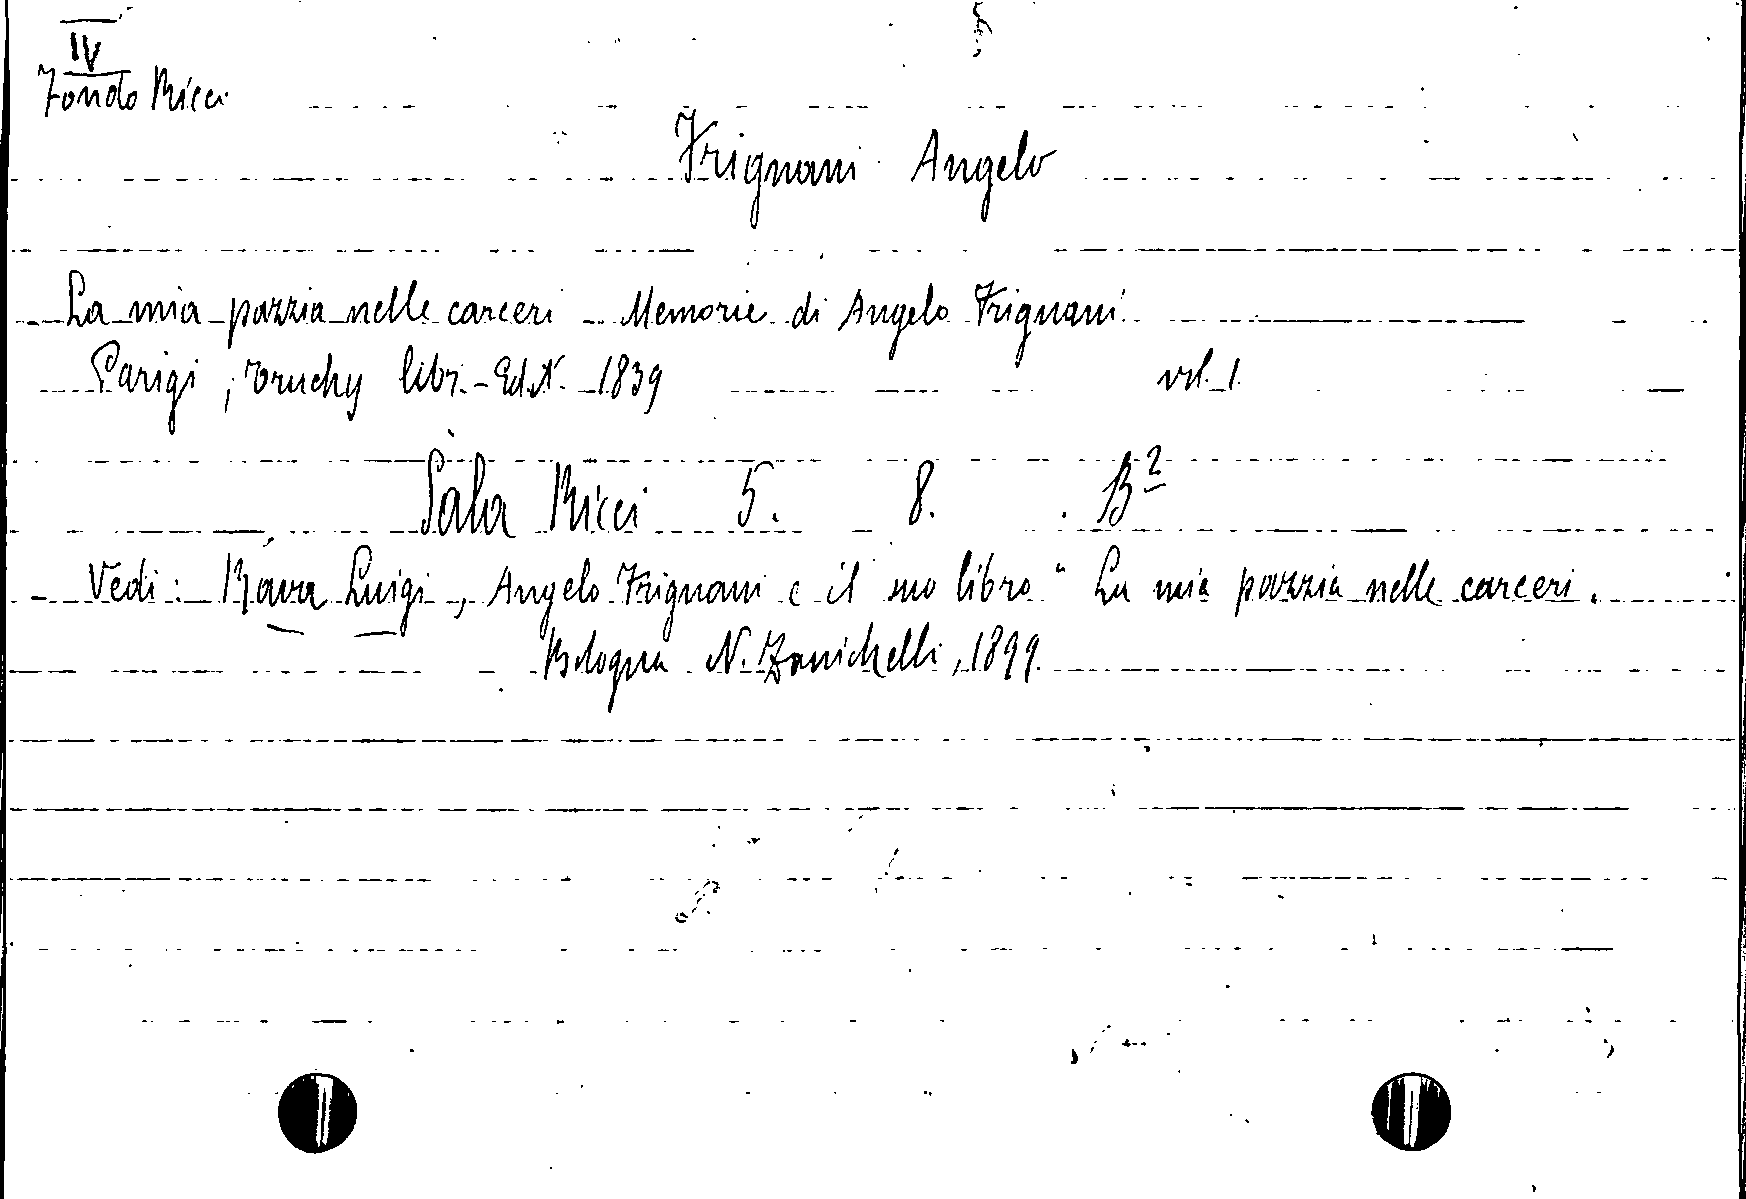 IV
Fondo Ricci
Frignani Angelo
La mia pazzia nelle carceri - Memorie di Angelo Frignani.
Parigi, Truchy libr. - Edit. 1839 vol. 1.
Sala Ricci 5. 8. B2
Vedi: Rava Luigi, Angelo Frignani e il suo libro " La mia pazzia nelle carceri.
Bologna N. Zanichelli, 1899.